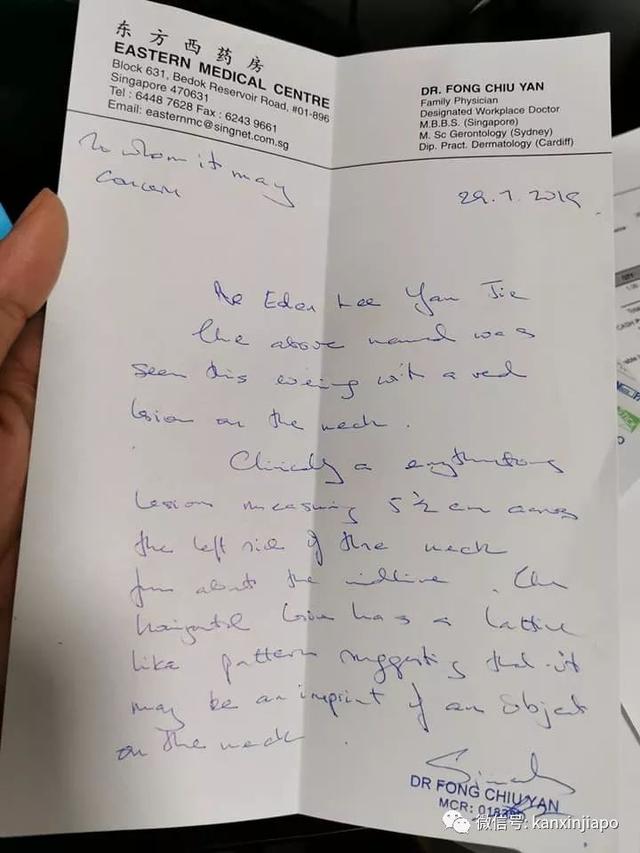 东方西药房
EASTERN MEDICAL CENTRE
Block 631, Bedok Reservoir Road, #01-896
Singapore 470631
Tel : 6448 7628 Fax : 6243 9661
Email: easternmc@singnet.com.sg
DR. FONG CHIU YAN
Family Physician
Designated Workplace Doctor
M.B.B.S. (Singapore)
M. Sc Gerontology (Sydney)
Dip. Pract. Dermatology (Cardiff)
To whom it may
concern
29.7.2019
Re Eden Lee Yan Jie
The above named was
seen this evening with a red
lesion on the neck.
Clinically a erythematous
lesion measuring 5½ cm across
the left side of the neck
from about the midline. The
horizontal lesion has a lattice
like pattern suggesting that it
may be an imprint of an object
on the neck.
Sincerely
DR FONG CHIU YAN
MCR:
微信号: kanxinjiapo